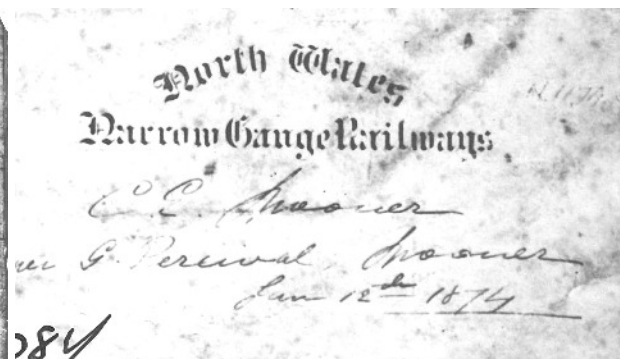 North Wales
Narrow Gauge Railways.
C. E. Spooner
G. Percival Spooner
Jan 12th 1874